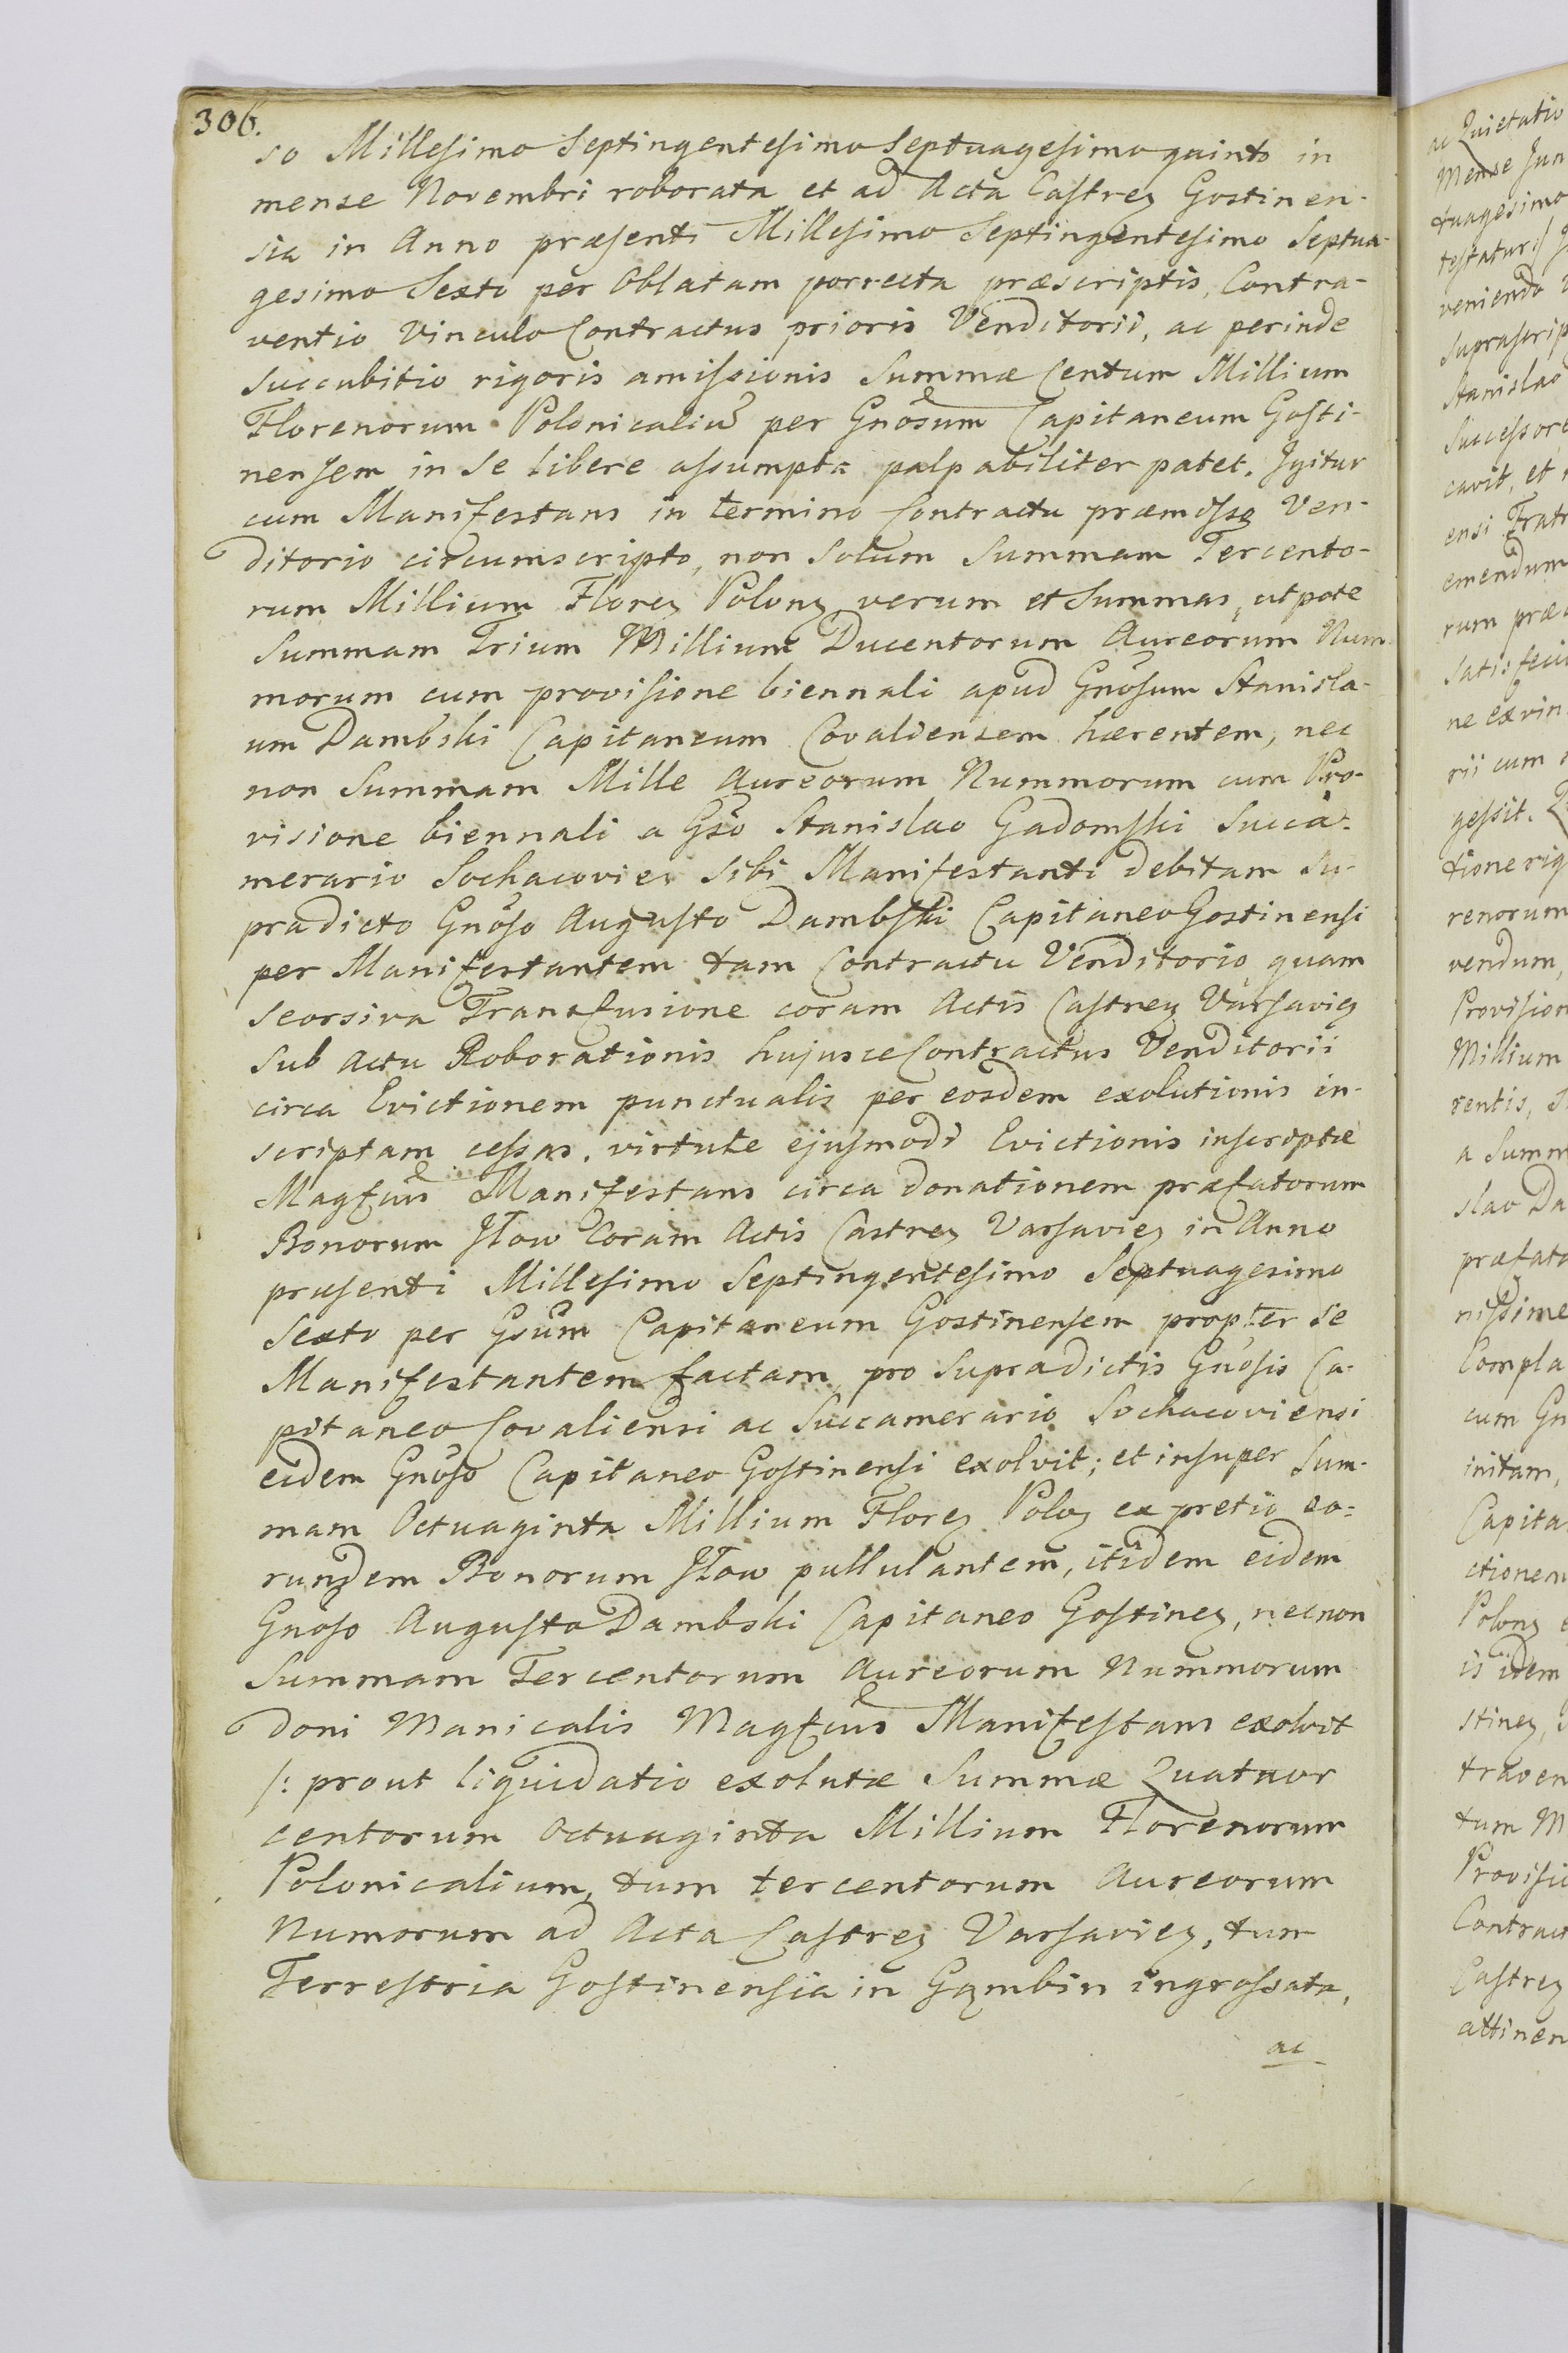 306.
so Millesimo Septingentesimo Septuagesimo quinto in
mense Novembri roborata et ad Acta Castreȝ Gostinen-
sia in Anno præsenti Millesimo Septingentesimo Septua-
gesimo Sexto per Oblatam porrecta præscriptis, Contra-
ventio Vinculo Contractus prioris Venditorii, ac perinde
succubitio rigoris amissionis Summæ Centum Millium
Florenorum Polonicaliū per Gnosum Capitaneum Gosti-
nensem in se libere assumpta palpabiliter patet. Igitur
cum Manifestans in termino Contractu præmisso Ven-
ditorio circumscripto, non solum Summam Tercento-
rum Millium Floreȝ Polonȝ verum et Summas, utpote
Summam Trium Millium Ducentorum Aureorum Num
morum cum provisione biennali apud Gnosum Stanisla-
um Dambski Capitaneum Covaliensem hærentem, nec
non Summam Mille Aureorum Nummorum cum Pro-
visione biennali a Gso Stanislao Gadomski Succa-
merario Sochacovieȝ sibi Manifestanti debitam su-
pradicto Gnoso Augusto Dambski Capitaneo Gostinensi
per Manifestantem tam Contractu Venditorio quam
seorsiva Transfusione coram Actis Castreȝ Varsavieȝ
sub actu Roborationis hujusce Contractus Venditorii
circa Evictionem punctualis per eosdem exolutionis in-
scriptam cessas, virtute ejusmodi Evictionis inscriptæ
Magfcus Manifestans circa donationem præfatorum
Bonorum Iłow Coram Actis Castreȝ Varsavieȝ in Anno
præsenti Millesimo Septingentesimo Septuagesimo
Sexto per Gsum Capitaneum Gostinensem propter se
Manifestantem factam, pro supradictis Gnosis Ca-
pitaneo Covaliensi ac Succamerario Sochacoviensi
eidem Gnoso Capitaneo Gostinensi exolvit; et insuper Sum-
mam Octuaginta Millium Floreȝ Poloȝ ex pretio eo-
rundem Bonorum Iłow pullulantem, itidem eidem
Gnoso Augusto Dambski Capitaneo Gostineȝ, necnon
Summam Tercentorum Aureorum Nummorum
doni Manicalis Magfcus Manifestans exolvit
/: prout liquidatio exolutæ Summæ Quatuor
centorum Octuaginta Millium Florenorum
Polonicalium, tum tercentorum Aureorum
Numorum ad Acta Castreȝ Varsavieȝ, tum
Terrestria Gostinensia in Gąmbin ingrossata,
ac
ac Quietatio
Mense Jun
tuagesimo
testatur:/
veniendo
suprascrip
Stanislao
Successore
cavit, et
ensi Fratr
emendum
rum præ
satisfeci
ne exvin
rii cum
gessit.
tione rig
renorum
vendum,
Provision
Millium
rentis,
a Summ
slao Da
præfata
nissime
Compla
cum Gn
initam,
Capita
ctionem
Polonȝ
is idem
stineȝ,
traven
tum M
Provisio
Contract
Castreȝ
attinen